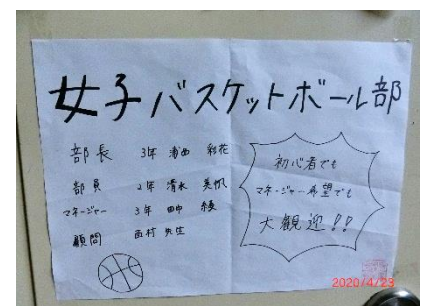 女子バスケットボール部
部長 3年 浦西 彩花
部員 2年 清水 美帆
マネージャー 3年 田中 綾
顧問 西村 先生
初心者でも
マネージャー希望でも
大観迎!!
2020/4/23